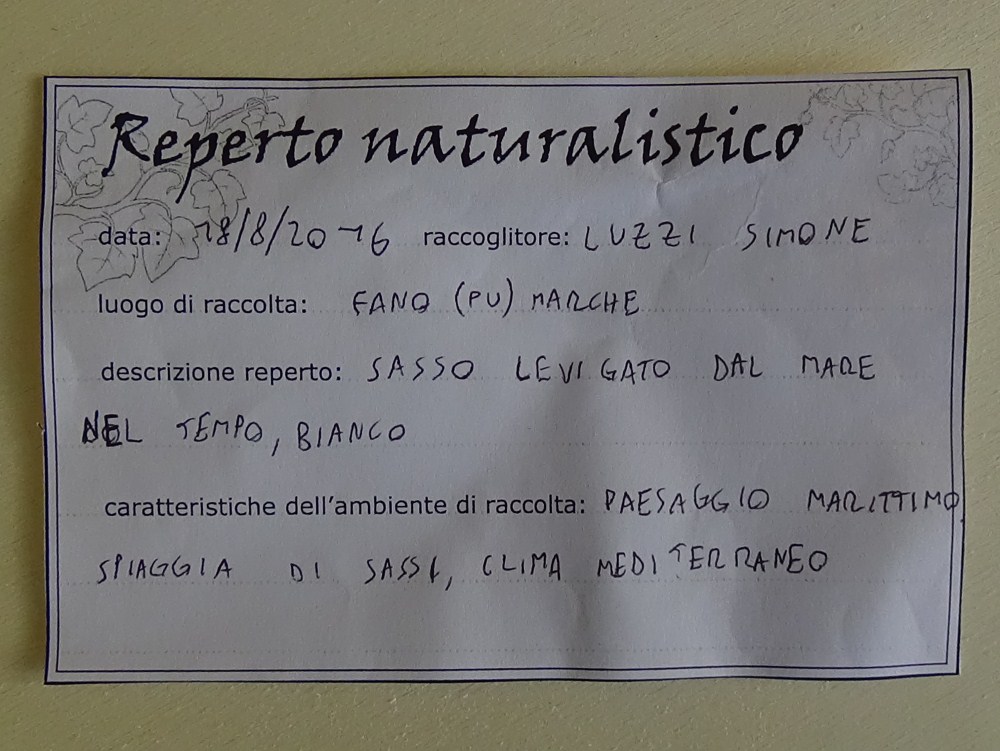 Reperto naturalistico
data: 18/8/2016 raccoglitore: LUZZI SIMONE
luogo di raccolta: FANO (PU) MARCHE
descrizione reperto: SASSO LEVIGATO DAL MARE
NEL TEMPO, BIANCO
caratteristiche dell'ambiente di raccolta: PAESAGGIO MARITTIMO,
SPIAGGIA DI SASSI, CLIMA MEDITERRANEO